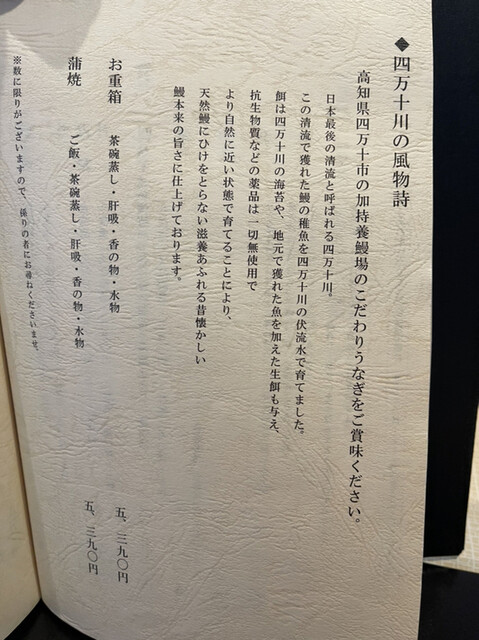 ◆四万十川の風物詩
高知県四万十市の加持養鰻場のこだわりうなぎをご賞味ください。
日本最後の清流と呼ばれる四万十川。
この清流で獲れた鰻の稚魚を四万十川の伏流水で育てました。
餌は四万十川の海苔や、地元で獲れた魚を加えた生餌も与え、
抗生物質などの薬品は一切無使用で
より自然に近い状態で育てることにより、
天然鰻にひけをとらない滋養あふれる昔懐かしい
鰻本来の旨さに仕上げております。
お重箱 茶碗蒸し・肝吸・香の物・水物 五、三九〇円
蒲焼 ご飯・茶碗蒸し・肝吸・香の物・水物 五、三九〇円
※数に限りがございますので、係りの者にお尋ねくださいませ。